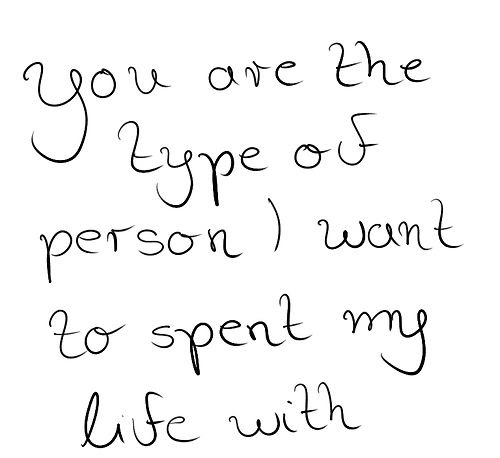 you are the
type of
person I want
to spent my
life with